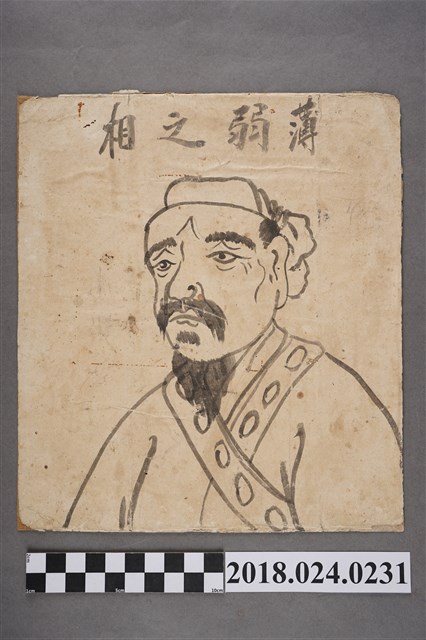 薄弱之相
2018.024.0231
1cm 5cm 10cm